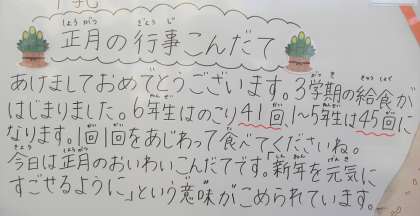 正月の行事こんだて
あけましておめでとうございます。3学期の給食が
はじまりました。6年生はのこり41回、1~5年生は45回に
なります。1回1回をあじわって食べてくださいね。
今日は正月のおいわいこんだてです。「新年を元気に
すごせるように」という意味がこめられています。